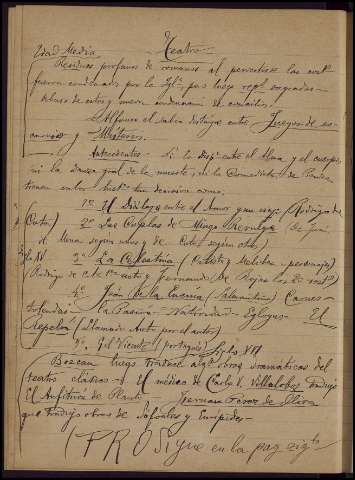 Edad Media Teatro
Escenas profanas de romanos al pervertirse las cost
fueron condenadas por la Igl.ª, pues luego repr. sagradas
Alfonso el sabio distingue entre Juegos de es-
carnios y Misterios.
Antecedentes La disp. entre el Alma y el cuerpo
ni la danza gral de la muerte, ni la Comedieta de Ponza
tienen en la hist. tan decisiva como
1º El Diálogo entre el Amor y un viejo (Rodrigo de
Cota) 2º Las Coplas de Mingo Revulgo (De Juan
d Mena según unos y de Cota según otros)
XV 3º La Celestina (Calisto y Melibea personajes)
(Rodrigo de Cota 1er acto y Fernando de Rojas los 20 restº)
4º Juan de la Encina (Salamantino) Carnes-
tolendas La Pasión Natividad Eglogas El
Repelón (llamado Auto por el autor)
5º Gil Vicente (portugués)
Siglo XVI
Boscan luego traduce algs obras dramáticas del
teatro clásico El médico de Carlo V. Villalobos tradujo
El Anfitrión de Plauto Hernan Perez de Oliva
que tradujo obras de Sófocles y Eurípides
(PROSigue en la pag sigte